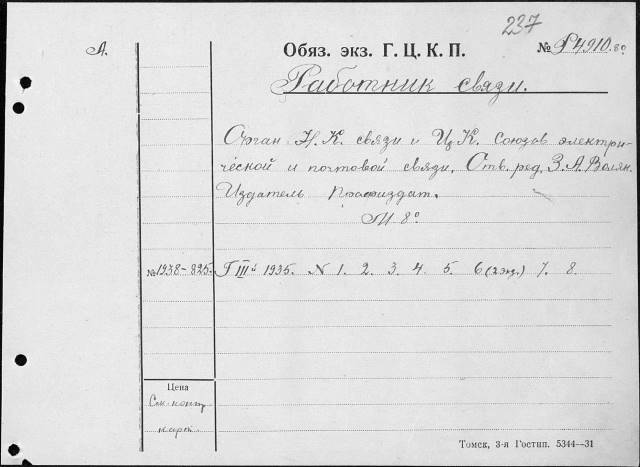 237
А. Обяз. экз. Г. Ц. К. П. № P4910.80
Работник связи.
Орган Н.К. связи и ЦК. Союзов электри-
ческой и почтовой связи. Отв. ред. З. А. Волян.
Издатель Профиздат.
М. 8°
№ 1938-825. Г IIIй 1935. N 1. 2. 3. 4. 5. 6 (2 экз.) 7. 8.
Цена
См. контр
карт.
Томск, 3-я Гостип. 5344—31